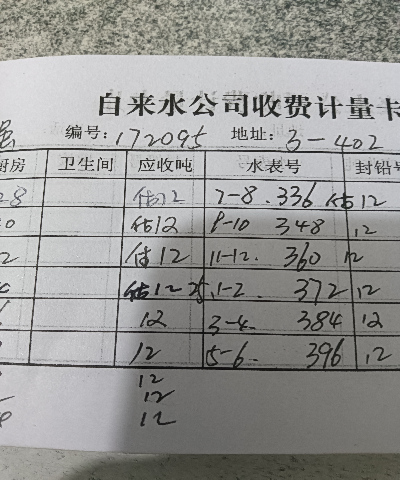 自来水公司收费计量卡
编号:172095 地址:3-402
厨房 卫生间 应收吨 水表号 封铅号
28 估12 7-8. 336 估12
估12 9-10 348 12
估12 11-12. 360 12
估12 25.1-2. 372 12
12 3-4. 384 12
12 5-6. 396 12
12
12
12